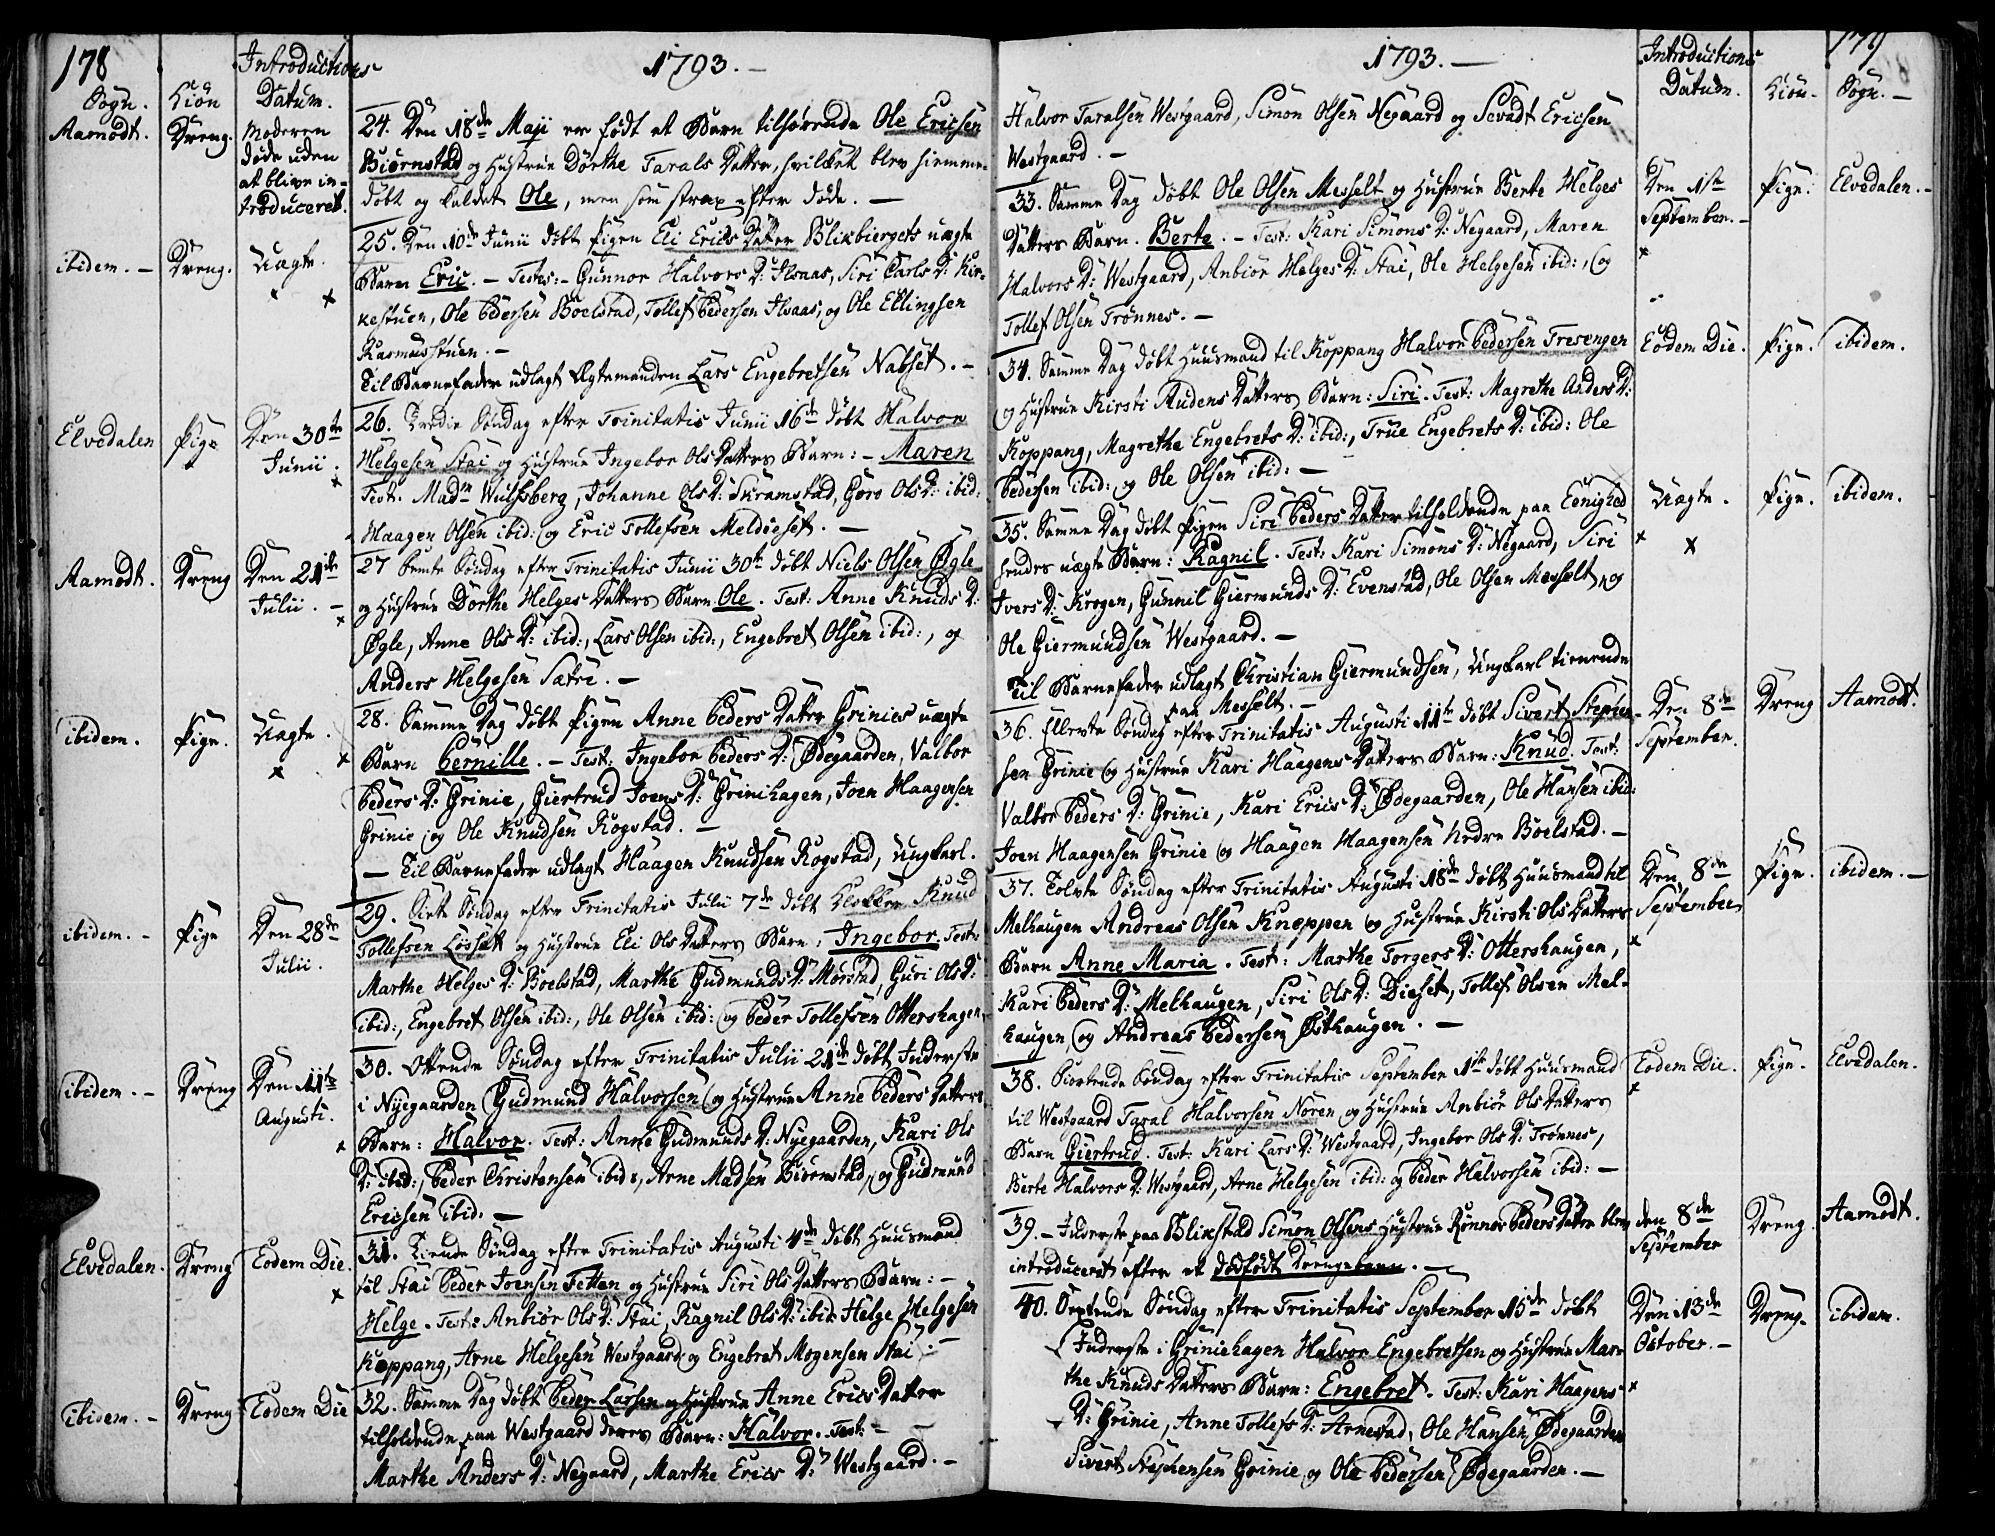 178
Introductions
1793. —
Sogn. Kiön Datum.
Aamodt. Dreng. Moderen döde uden at blive introduceret.
24. Den 18de Maji er födt et Barn tilhörende Ole Ericsen
Biörnstad og Hustrue Dörthe Tarals Datter, hvilket blev hiemme-
döbt og kaldet Ole, men som strax efter döde. —
ibidem. — Dreng. Uægte.
25. Den 10de Junii döbt Pigen Eli Erics Datter Blikbiergets uægte
Barn Eric. — Test:— Gunnor Halvors D: Ilsaas, Siri Carls D: Kir-
kestuen, Ole Pedersen Boelstad, Tollef Pedersen Ilsaas, og Ole Ellingsen
Rasmusstuen. —
Til Barnefader udlagt Ægtemanden Lars Engebretsen Nabset. —
Elvedalen Pige Den 30te Junii.
26. Tredie Söndag efter Trinitatis Junii 16de döbt Halvor
Helgesen Stai og Hustrue Ingebor Ols Datters Barn: — Maren
Test: Madm Wulfsberg, Johanne Ols D: Skramstad, Goro Ols D: ibid:
Haagen Olsen ibid: og Eric Tollefsen Meldieset. —
Aamodt. Dreng Den 21de Julii. —
27 Femte Söndag efter Trinitatis Junii 30te döbt Niels Olsen Ögle
og Hustrue Dorthe Helges Datters Barn Ole. Test: Anne Knuds D:
Ögle, Anne Ols D: ibid:, Lars Olsen ibid:, Engebret Olsen ibid:, og
Anders Helgesen Sætre. —
ibidem. Pige. Uægte.
28. Samme Dag döbt Pigen Anne Peders Datter Grinies uægte
Barn Pernille. — Test: Ingebor Peders D: Ödegaarden, Valbor
Peders D: Grinie, Giertrud Joens D: Grinihagen, Joen Haagensen
Grinie og Ole Knudsen Rogstad. —
— Til Barnefader udlagt Haagen Knudsen Rogstad, Ungkarl.
ibidem. — Pige Den 28de Julii.
29. Siette Söndag efter Trinitatis Julii 7de döbt Klokker Knud
Tollefsen Losset og Hustrue Eli Ols Datters Barn: Ingebor. Test:
Marthe Helges D: Boelstad, Marthe Gudmunds D: Morstad, Guri Ols D:
ibid:, Engebret Olsen ibid:, Ole Olsen ibid: og Peder Tollefsen Ottershagen.
ibidem. — Dreng Den 11te Augusti.
30. Ottende Söndag efter Trinitatis Julii 21de döbt Inderste
i Nyegaarden Gudmund Halvorsen og Hustrue Anne Peders Datters
Barn: Halvor. Test: Anne Gudmunds D: Nyegaarden, Kari Ols
D: ibid:, Peder Christensen ibid:, Arne Madsen Biörnstad, og Gudmund
Ericsen ibid: —
Elvedalen. Dreng Eodem Die.
31. Tiende Söndag efter Trinitatis Augusti 4de döbt Huusmand
til Stai Peder Joensen Fettan og Hustrue Siri Ols Datters Barn: —
Helge. Test: Anbiör Ols D: Stai, Ragnil Ols D: ibid: Helge Helgesen
Koppang, Arne Helgesen Westgaard og Engebret Mogensen Stai. —
ibidem. — Dreng Eodem Die
32. Samme Dag döbt Peder Larsen og Hustrue Anne Erics Datter
tilholdende paa Westgaard deres Barn: Halvor. Test: —
Marthe Anders D: Negaard, Marthe Erics D: Westgaard. —
179
1793. —
Introductions
Datum. Kiön. Sogn. —
Halvor Taralsen Westgaard, Simon Olsen Negaard og Sevadt Ericsen
Westgaard. —
33. Samme Dag döbt Ole Olsen Messelt og Hustrue Berte Helges
Datters Barn. Berte. — Test: Kari Simons D: Negaard, Maren
Halvors D: Westgaard, Anbiör Helges D: Stai, Ole Helgesen ibid:, og
Tollef Olsen Trönnes. —
Den 1ste September. — Pige. Elvedalen. —
34. Samme Dag döbt Huusmand til Koppang Halvor Pedersen Tresengen
og Hustrue Kirsti Audens Datters Barn: Siri. Test: Magrethe Anders D:
Koppang, Magrethe Engebrets D: ibid:, Trüe Engebrets D: ibid: Ole
Pedersen ibid: og Ole Olsen ibid: —
Eodem Die. Pige. ibidem.
35. Samme Dag döbt Pigen Siri Peders Datter tilholdende paa Eenighed
hendes uægte Barn: Ragnil. Test: Kari Simons D: Negaard, Siri
Ivers D: Krogen, Gunnil Giermunds D: Evenstad, Ole Olsen Messelt og
Ole Giermundsen Westgaard. —
Til Barnefader udlagt Christian Giermundsen, Ungkarl tienende
paa Messelt. —
Uægte. Pige. ibidem.
36. Ellevte Söndag efter Trinitatis Augusti 11te döbt Sivert Stephen-
sen Grinie og Hustrue Kari Haagens Datters Barn: Knud. Test:
Valbor Peders D: Grinie, Kari Erics D: Ödegaarden, Ole Hansen ibid:
Joen Haagensen Grinie og Haagen Haagensen Nedre Boelstad. —
Den 8de September. Dreng Aamodt.
37. Tolvte Söndag efter Trinitatis Augusti 18de döbt Huusmand til
Melhaugen Andreas Olsen Knæppen og Hustrue Kirsti Ols Datters
Barn Anne Maria. Test: Marthe Torgers D: Ottershaugen,
Kari Peders D: Melhaugen, Siri Ols D: Dieset, Tollef Olsen Mel-
haugen og Andreas Pedersen Østhaugen. —
Den 8de September Pige. ibidem. —
38. Fiortende Söndag efter Trinitatis September 1ste döbt Huusmand
til Westgaard Taral Halvorsen Noren og Hustrue Anbiör Ols Datters
Barn Giertrud. Test: Kari Lars D: Westgaard, Ingebor Ols D: Trönnes,
Berte Halvors D: Westgaard, Arne Helgesen ibid: og Peder Halvorsen ibid: —
Eodem Die. Pige. Elvedalen.
39. — Inderste paa Blikstad Simon Olsens Hustrue Rönnor Peders Datter blev
introduceret efter et dödfödt Drengebarn. —
den 8de September Dreng. Aamodt.
40. Sextende Söndag efter Trinitatis September 15de döbt
Inderste i Griniehagen Halvor Engebretsen og Hustrue Mar-
the Knuds Datters Barn: Engebret. Test: Kari Haagens
D: Grinie, Anne Tollefs D: Arnestad, Ole Hansen Ödegaarden
Sivert Stephensen Grinie og Ole Pedersen Ödegaarden. —
Den 13de October. — Dreng. ibidem.